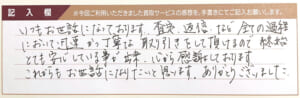 記入欄
※今回ご利用いただきました買取サービスの感想を、手書きにてご記入お願いします。
いつもお世話になっております。査定、返信など全ての過程
において迅速かつ丁寧な取り引きをして頂けるので終始
とても安心している事が出来、心から感謝しております
これからもお世話になりたいと思います。ありがとうございました。